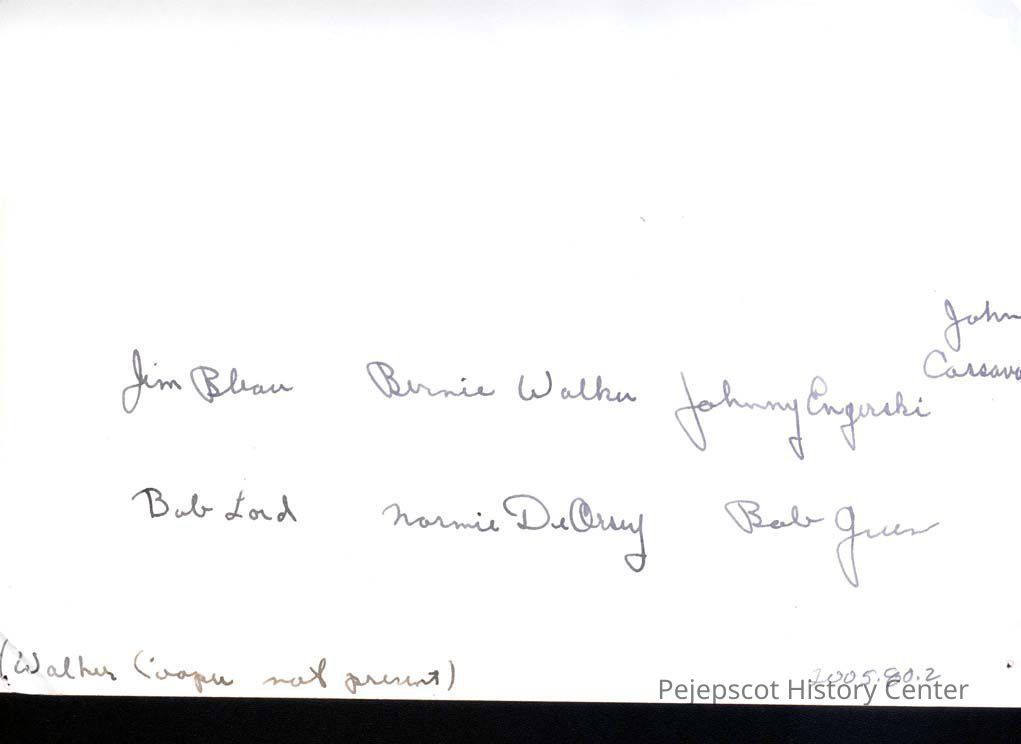 John
Jim Bleau Bernie Walker Johnny Engerski Carsava
Bob Lord Normie DeOrsey Bob Green
(Walker Cooper not present)
2005.80.2
Pejepscot History Center